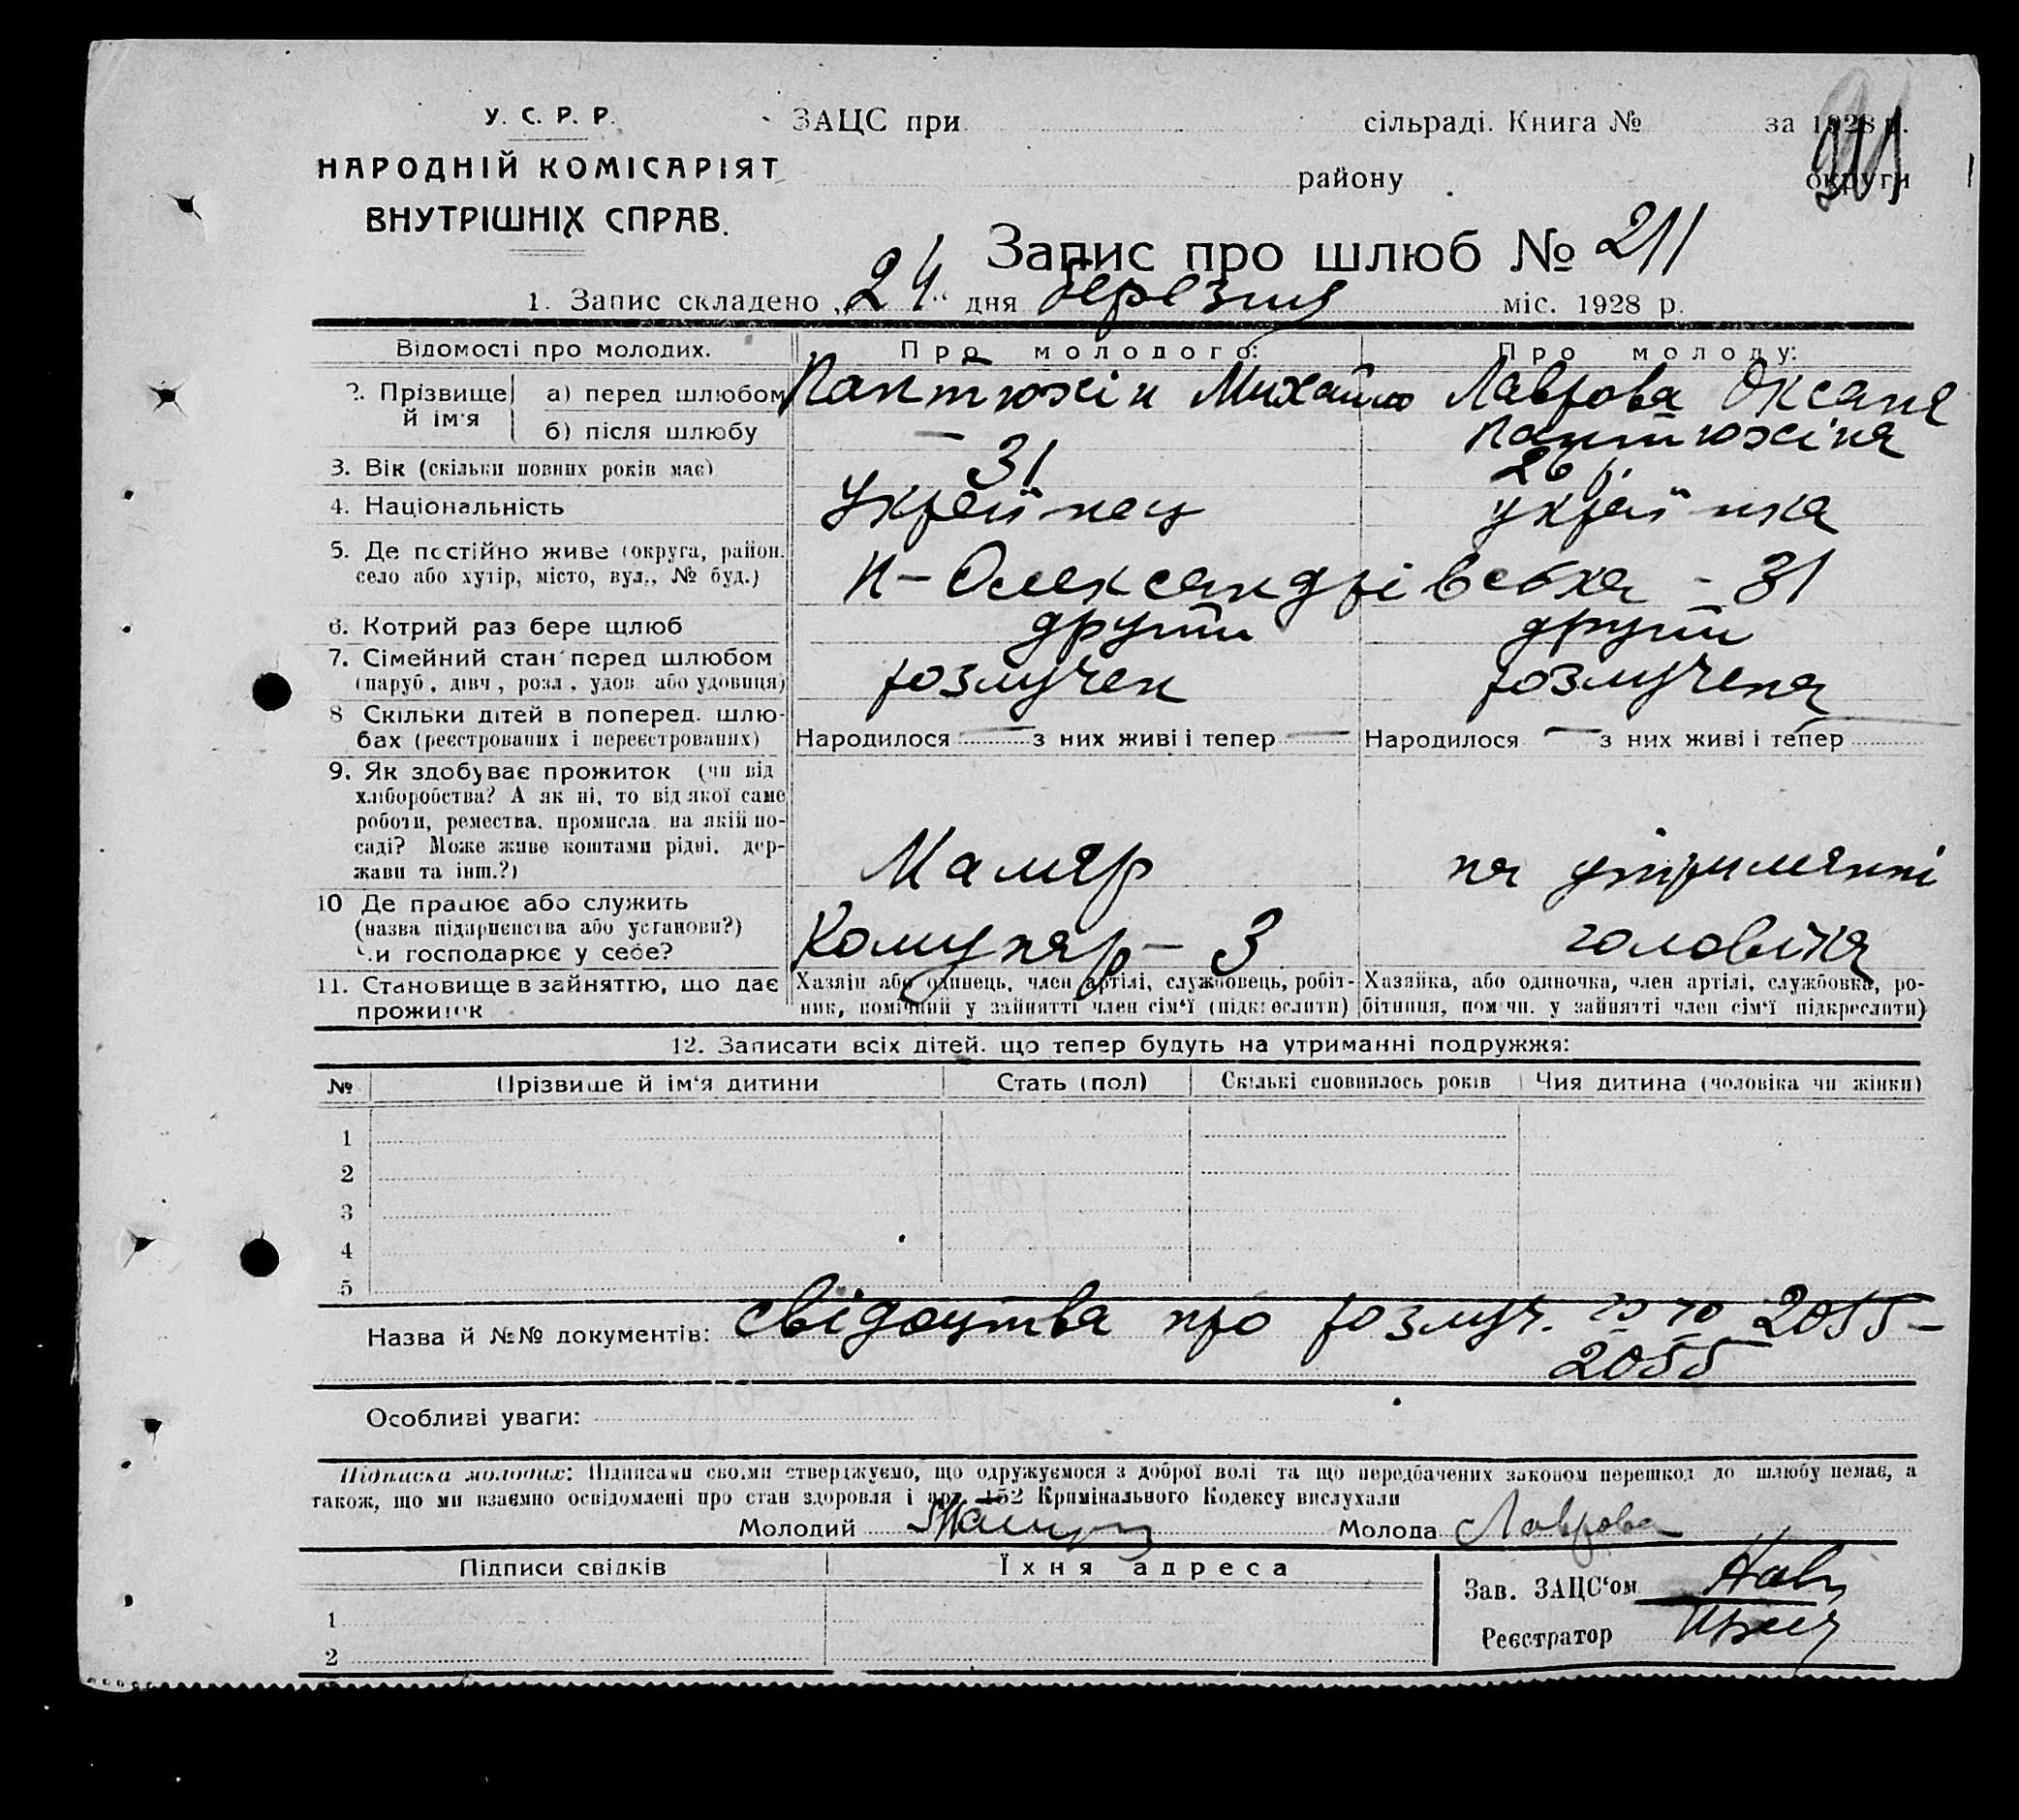 У. С. Р. Р.
НАРОДНІЙ КОМІСАРІЯТ
ВНУТРІШНІХ СПРАВ.
ЗАЦС при сільраді. Книга № за 1928 р.
району округи
211
Запис про шлюб № 211
1. Запис складено „24“ дня березня міс. 1928 р.
Відомості про молодих. Про молодого: Про молоду:
2. Прізвище й ім'я а) перед шлюбом Пантюхін Михайло Лаврова Оксана
б) після шлюбу — Пантюхіна
3. Вік (скільки повних років має) 31 26 р.
4. Національність Українец українка
5. Де постійно живе (округа, район. село або хутір, місто, вул., № буд.) Н-Олександрівська - 31
6. Котрий раз бере шлюб другий другий
7. Сімейний стан перед шлюбом (паруб., дівч., розл., удов. або удовиця) розлучен розлучена
8 Скільки дітей в поперед. шлюбах (реєстрованих і нереєстрованих) Народилося — з них живі і тепер — Народилося — з них живі і тепер
9. Як здобуває прожиток (чи від
хліборобства? А як ні, то від якої саме
роботи, ремества, промисла, на якій по-
саді? Може живе коштами рідні, дер-
жави та інш.?) Маляр на утриманні
10 Де працює або служить
(назва підприємства або установи?)
Чи господарює у себе? Комунар - 3 чоловіка
11. Становище в зайняттю, що дає прожиток
Хазяін або одинець, член артілі, службовець, робіт-
ник, помічний у зайнятті член сім'ї (підкреслити)
Хазяйка, або одиночка, член артілі, службовка, ро-
бітниця, помічн. у зайнятті член сім'ї підкреслити)
12. Записати всіх дітей, що тепер будуть на утриманні подружжя:
№ Прізвище й ім'я дитини Стать (пол) Скількі сповнилось років Чия дитина (чоловіка чи жінки)
1
2
3
4
5
Назва й №№ документів: свідоцтва про розлуч. 2055-
2055
Особливі уваги:
Підписка молодих: Підписами своїми стверджуємо, що одружуємося з доброї волі та що передбачених законом перешкод до шлюбу немає, а
також, що ми взаємно освідомлені про стан здоровля і арт. 152 Кримінального Кодексу вислухали
Молодий Молода Лаврова
Підписи свідків Їхня адреса
Зав. ЗАЦС'ом
1
Реєстратор
2